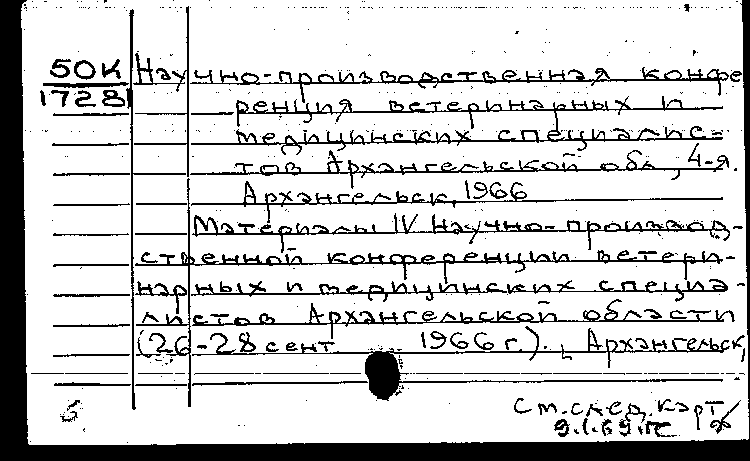 50К Научно-производственная конфе
17281 ренция ветеринарных и
медицинских специалис=
тов Архангельской обл., 4-я.
Архангельск, 1966
Материалы IV научно-производ-
ственной конференции ветери-
нарных и медицинских специа-
листов Архангельской области
(26-28 сент. 1966 г.). Архангельск,
См. след. карт
9.1.69.